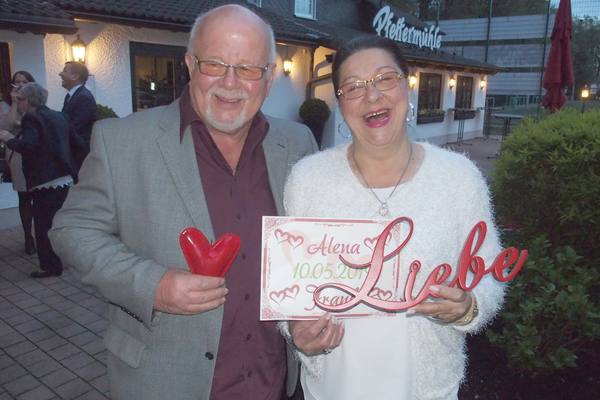 Pfeffermühle
Alena
10.05.201
Liebe